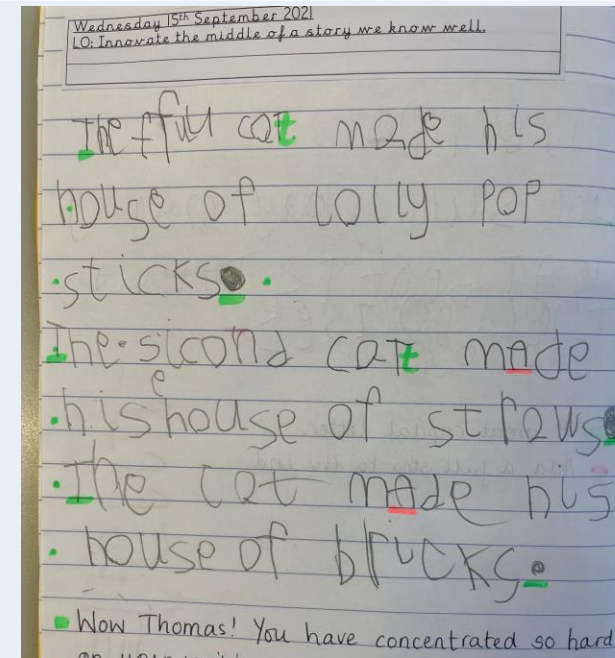 Wednesday 15th September 2021
LO: Innovate the middle of a story we know well.
The ffull cat made his
house of lolly pop
sticks.
The sicond cat made
his house of straws.
The cat made his
house of brucks.
Wow Thomas! You have concentrated so hard